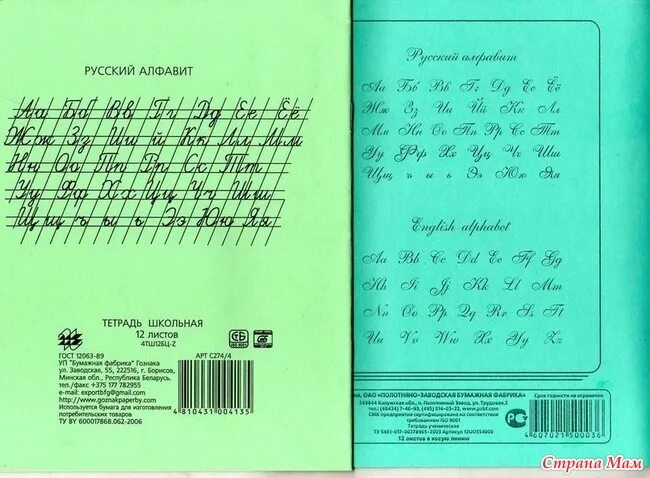 РУССКИЙ АЛФАВИТ
Аа Бб Вв Гг Дд Ее Ёё
Жж Зз Ии Йй Кк Лл Мм
Нн Оо Пп Рр Сс Тт
Уу Фф Хх Цц Чч Шш
Щщ ъ ы ь Ээ Юю Яя
ТЕТРАДЬ ШКОЛЬНАЯ
12 листов
4ТШ12БЦ-Z
ГОСТ 12063-89
АРТ С274/4
УП "Бумажная фабрика" Гознака
ул. Заводская, 55, 222516, г. Борисов,
Минская обл., Республика Беларусь.
тел./факс +375 177 782955
e-mail: exportbfg@gmail.com
http: www.goznakpaperby.com
Используется бумага для изготовления
потребительских товаров
ТУ BY 600017868.062-2006
4 810431 004135
Русский алфавит
Аа Бб Вв Гг Дд Ее Ёё
Жж Зз Ии Йй Кк Лл
Мм Нн Оо Пп Рр Сс Тт
Уу Фф Хх Цц Чч Шш
Щщ ъ ы ь Ээ Юю Яя
English alphabet
Aa Bb Cc Dd Ee Ff Gg
Hh Ii Jj Kk Ll Mm
Nn Oo Pp Qq Rr Ss Tt
Uu Vv Ww Xx Yy Zz
ОАО «ПОЛОТНЯНО-ЗАВОДСКАЯ БУМАЖНАЯ ФАБРИКА»
Срок годности не ограничен
249844 Калужская обл., п. Полотняный Завод, ул. Трудовая, 2
СМК предприятия сертифицирована на соответствие
требованиям ISO 9001
Тетрадь ученическая
12 листов в косую линию
4 607021 500036
Страна Мам